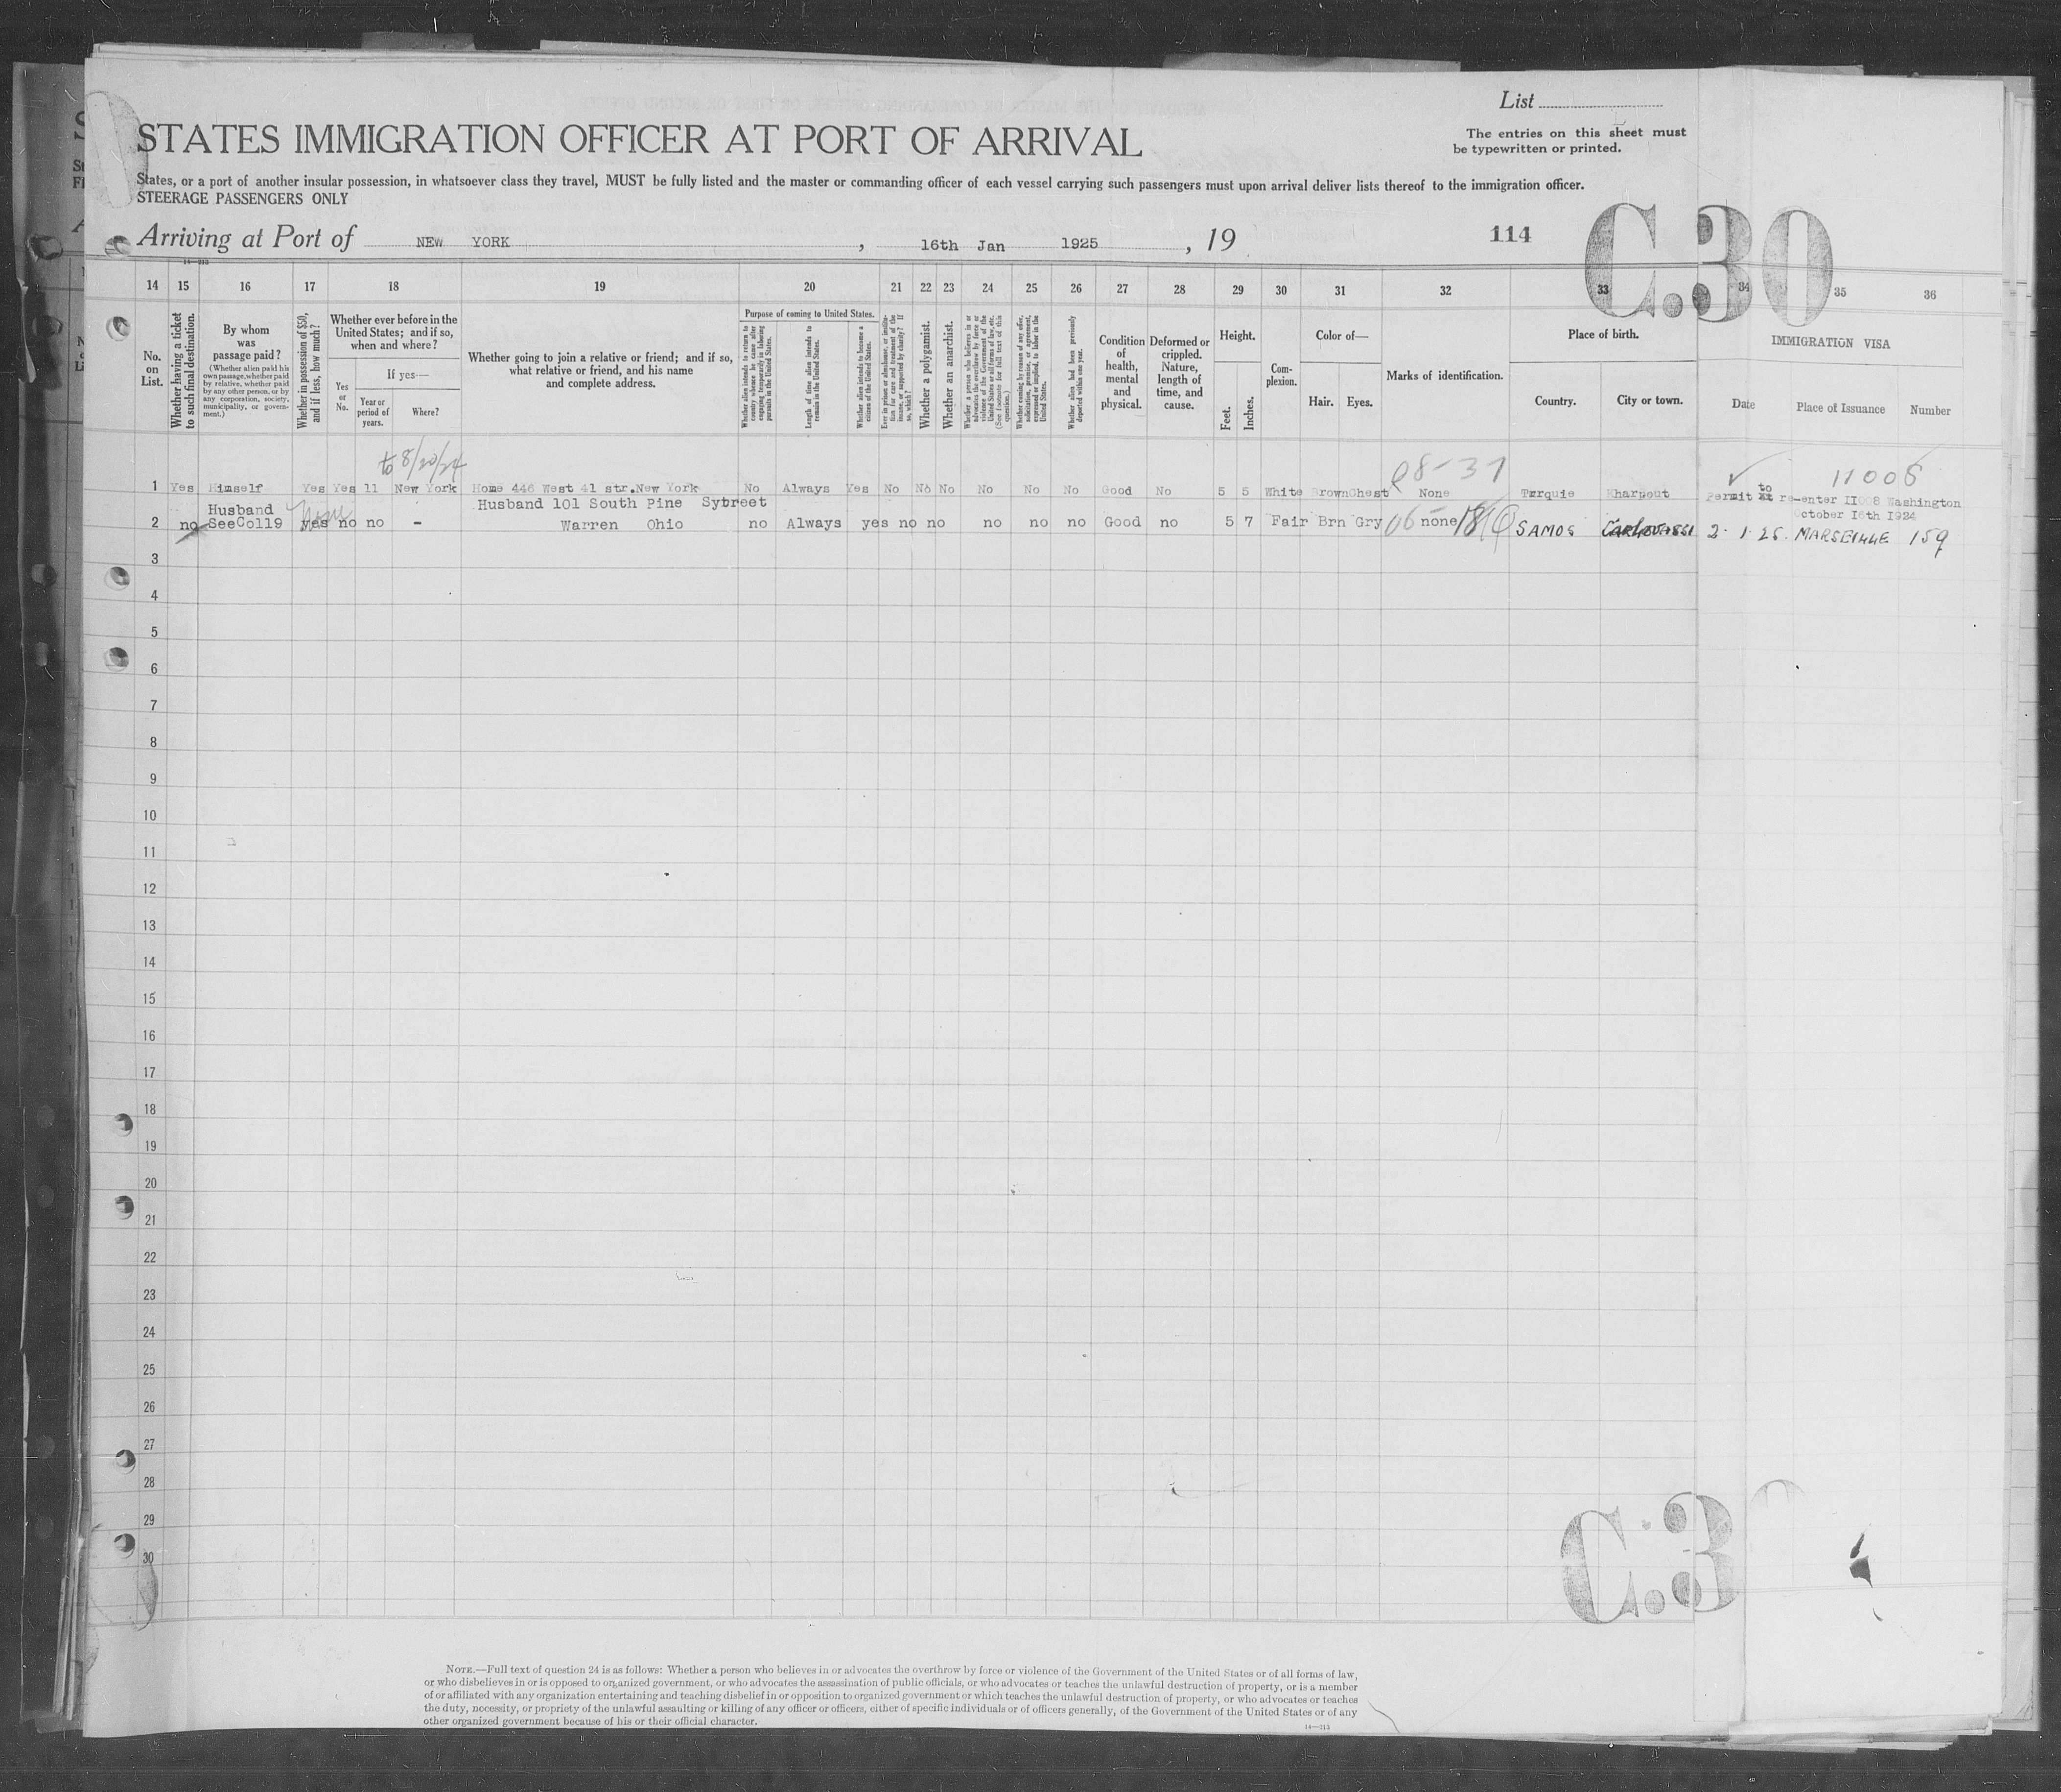 List
The entries on this sheet must
be typewritten or printed.
STATES IMMIGRATION OFFICER AT PORT OF ARRIVAL
States, or a port of another insular possession, in whatsoever class they travel, MUST be fully listed and the master or commanding officer of each vessel carrying such passengers must upon arrival deliver lists thereof to the immigration officer.
STEERAGE PASSENGERS ONLY
Arriving at Port of NEW YORK , 16th Jan 1925 , 19
114
C.30
14 15 16 17 18 19 20 21 22 23 24 25 26 27 28 29 30 31 32 33 34 35 36
No. on List.
Whether having a ticket to such final destination.
By whom was passage paid?
(Whether alien paid his own passage, whether paid by relative, whether paid by any other person, or by any corporation, society, municipality, or government.)
Whether in possession of $50, and if less, how much?
Whether ever before in the United States; and if so, when and where?
Yes or No.
If yes—
Year or period of years.
Where?
Whether going to join a relative or friend; and if so, what relative or friend, and his name and complete address.
Purpose of coming to United States.
Whether alien intends to return to country whence he came after engaging temporarily in laboring pursuits in the United States.
Length of time alien intends to remain in the United States.
Whether alien intends to become a citizen of the United States.
Whether a polygamist.
Whether an anarchist.
Whether coming by reason of any offer, solicitation, promise, or agreement, expressed or implied, to labor in the United States.
Whether alien had been previously deported within one year.
Condition of health, mental and physical.
Deformed or crippled. Nature, length of time, and cause.
Height.
Feet.
Inches.
Complexion.
Color of—
Hair. Eyes.
Marks of identification.
Place of birth.
Country. City or town.
IMMIGRATION VISA
Date Place of Issuance Number
to 8/20/24
08-37
11008
1 Yes Himself Yes Yes 11 New York Home 446 West 41 str.New York No Always Yes No No No No No No Good No 5 5 White Brown Chest None Turquie Kharpout Permit to re-enter II008 Washington
October 16th 1924
Husband
Husband 101 South Pine Sybreet
2 no SeeCol19 none yes no no - Warren Ohio no Always yes no no no no no Good no 5 7 Fair Brn Gry 06- none SAMOS 2-1-25. MARSEILLE 159
3
4
5
6
7
8
9
10
11
12
13
14
15
16
17
18
19
20
21
22
23
24
25
26
27
28
29
30
C.3
NOTE.—Full text of question 24 is as follows: Whether a person who believes in or advocates the overthrow by force or violence of the Government of the United States or of all forms of law,
or who disbelieves in or is opposed to organized government, or who advocates the assassination of public officials, or who advocates or teaches the unlawful destruction of property, or is a member
of or affiliated with any organization entertaining and teaching disbelief in or opposition to organized government or which teaches the unlawful destruction of property, or who advocates or teaches
the duty, necessity, or propriety of the unlawful assaulting or killing of any officer or officers, either of specific individuals or of officers generally, of the Government of the United States or of any
other organized government because of his or their official character.
14—213